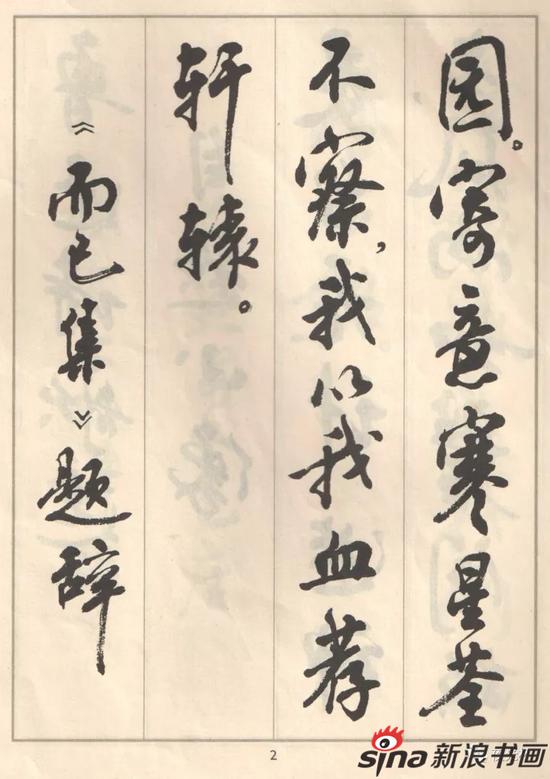 园。寄意寒星荃
不察，我以我血荐
轩辕。
《而已集》题辞
2
sina 新浪书画